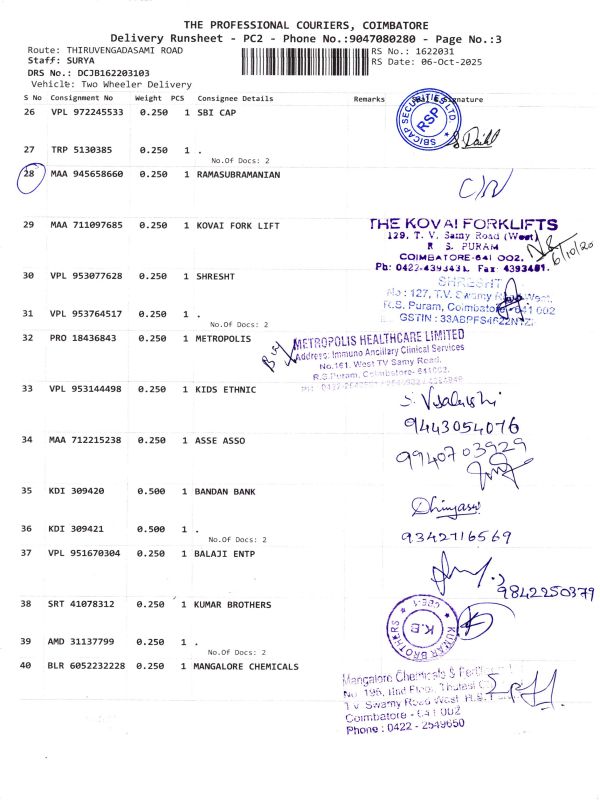 THE PROFESSIONAL COURIERS, COIMBATORE
Delivery Runsheet - PC2 - Phone No.:9047080280 - Page No.:3
Route: THIRUVENGADASAMI ROAD RS No.: 1622031
Staff: SURYA RS Date: 06-Oct-2025
DRS No.: DCJB162203103
Vehicle: Two Wheeler Delivery
S No Consignment No Weight PCS Consignee Details Remarks Signature
26 VPL 972245533 0.250 1 SBI CAP
SBICAP SECURITIES LTD.
RSP
27 TRP 5130385 0.250 1 .
No.Of Docs: 2
28 MAA 945658660 0.250 1 RAMASUBRAMANIAN
29 MAA 711097685 0.250 1 KOVAI FORK LIFT
THE KOVAI FORKLIFTS
129, T. V. Samy Road (West)
R S. PURAM
COIMBATORE-641 002.
Ph: 0422-4393431. Fax 4393481.
6/10/20
30 VPL 953077628 0.250 1 SHRESHT
SHRESHT
No : 127, T.V. Swamy Road West,
R.S. Puram, Coimbatore-641 002
GSTIN :
31 VPL 953764517 0.250 1 .
No.Of Docs: 2
32 PRO 18436843 0.250 1 METROPOLIS
METROPOLIS HEALTHCARE LIMITED
Address: Immuno Ancillary Clinical Services
No.161, West TV Samy Road,
R.S.Puram, Coimbatore- 641002.
33 VPL 953144498 0.250 1 KIDS ETHNIC
9443054076
34 MAA 712215238 0.250 1 ASSE ASSO
9940703929
35 KDI 309420 0.500 1 BANDAN BANK
36 KDI 309421 0.500 1 .
No.Of Docs: 2
9342716569
37 VPL 951670304 0.250 1 BALAJI ENTP
9842250379
38 SRT 41078312 0.250 1 KUMAR BROTHERS
KUMAR BROTHERS
K.B
39 AMD 31137799 0.250 1 .
No.Of Docs: 2
40 BLR 6052232228 0.250 1 MANGALORE CHEMICALS
Mangalore Chemicals &
No. 195, IInd Floor, Thulasi
T.V. Swamy Road West, R.S.
Coimbatore - 641 002
Phone : 0422 - 2549650